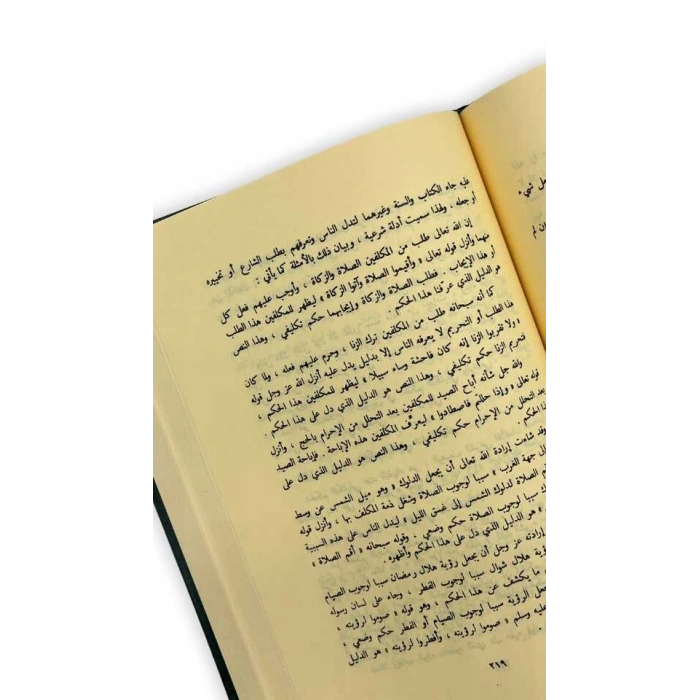 عليه جاء الكتاب والسنة وغيرهما لتدل الناس وتعرفهم بطلب الشارع أو تخييره
أو جعله ، ولهذا سميت أدلة شرعية ، وبيان ذلك بالأمثلة كما يأتي :
إن الله تعالى طلب من المكلفين الصلاة والزكاة ، وأوجب عليهم فعل كل
منهما وأنزل قوله تعالى « وأقيموا الصلاة وآتوا الزكاة » ليظهر للمكلفين هذا الطلب
أو هذا الإيجاب . فطلب الصلاة والزكاة وإيجابهما حكم تكليفي ، وهذا النص
هو الدليل الذي عرفنا هذا الحكم .
كما أنه سبحانه طلب من المكلفين ترك الزنا ، وحرم عليهم فعله ، ولما كان
هذا الطلب أو التحريم لا يعرفه الناس إلا بدليل يدل عليه أنزل الله عز وجل قوله
« ولا تقربوا الزنا إنه كان فاحشة وساء سبيلا » ليظهر للمكلفين هذا الحكم .
تحريم الزنا حكم تكليفي ، وهذا النص هو الدليل الذي دل على هذا الحكم .
والله جل شأنه أباح الصيد للمكلفين بعد التحلل من الإحرام بالحج ، وأنزل
قوله تعالى « وإذا حللتم فاصطادوا » ليعرف المكلفين هذه الإباحة . فإباحة الصيد
بعد التحلل من الإحرام حكم تكليفي ، وهذا النص هو الدليل الذي دل على
هذا الحكم .
وقد شاءت إرادة الله تعالى أن يجعل الدلوك « وهو ميل الشمس عن وسط
إلى جهة الغرب » سببا لوجوب الصلاة وشغل ذمة المكلف بها ، وأنزل قوله
أقم الصلاة لدلوك الشمس إلى غسق الليل » ليدل الناس على هذه السببية
سببا لوجوب الصلاة حكم وضعي ، وقوله سبحانه « أقم الصلاة »
» هو الدليل الذي دل على هذا الحكم وأظهره .
إرادته عز وجل أن يجعل رؤية هلال رمضان سببا لوجوب الصيام
رؤية هلال شوال سببا لوجوب الفطر ، وجاء على لسان رسوله
ما يكشف عن هذا الحكم ، وهو قوله « صوموا لرؤيته ،
جعل الرؤية سببا لوجوب الصيام أو الفطر حكم وضعي ،
عليه وسلم « صوموا لرؤيته ، وأفطروا لرؤيته » هو الدليل
٣١٩
كل شيء
ان لم